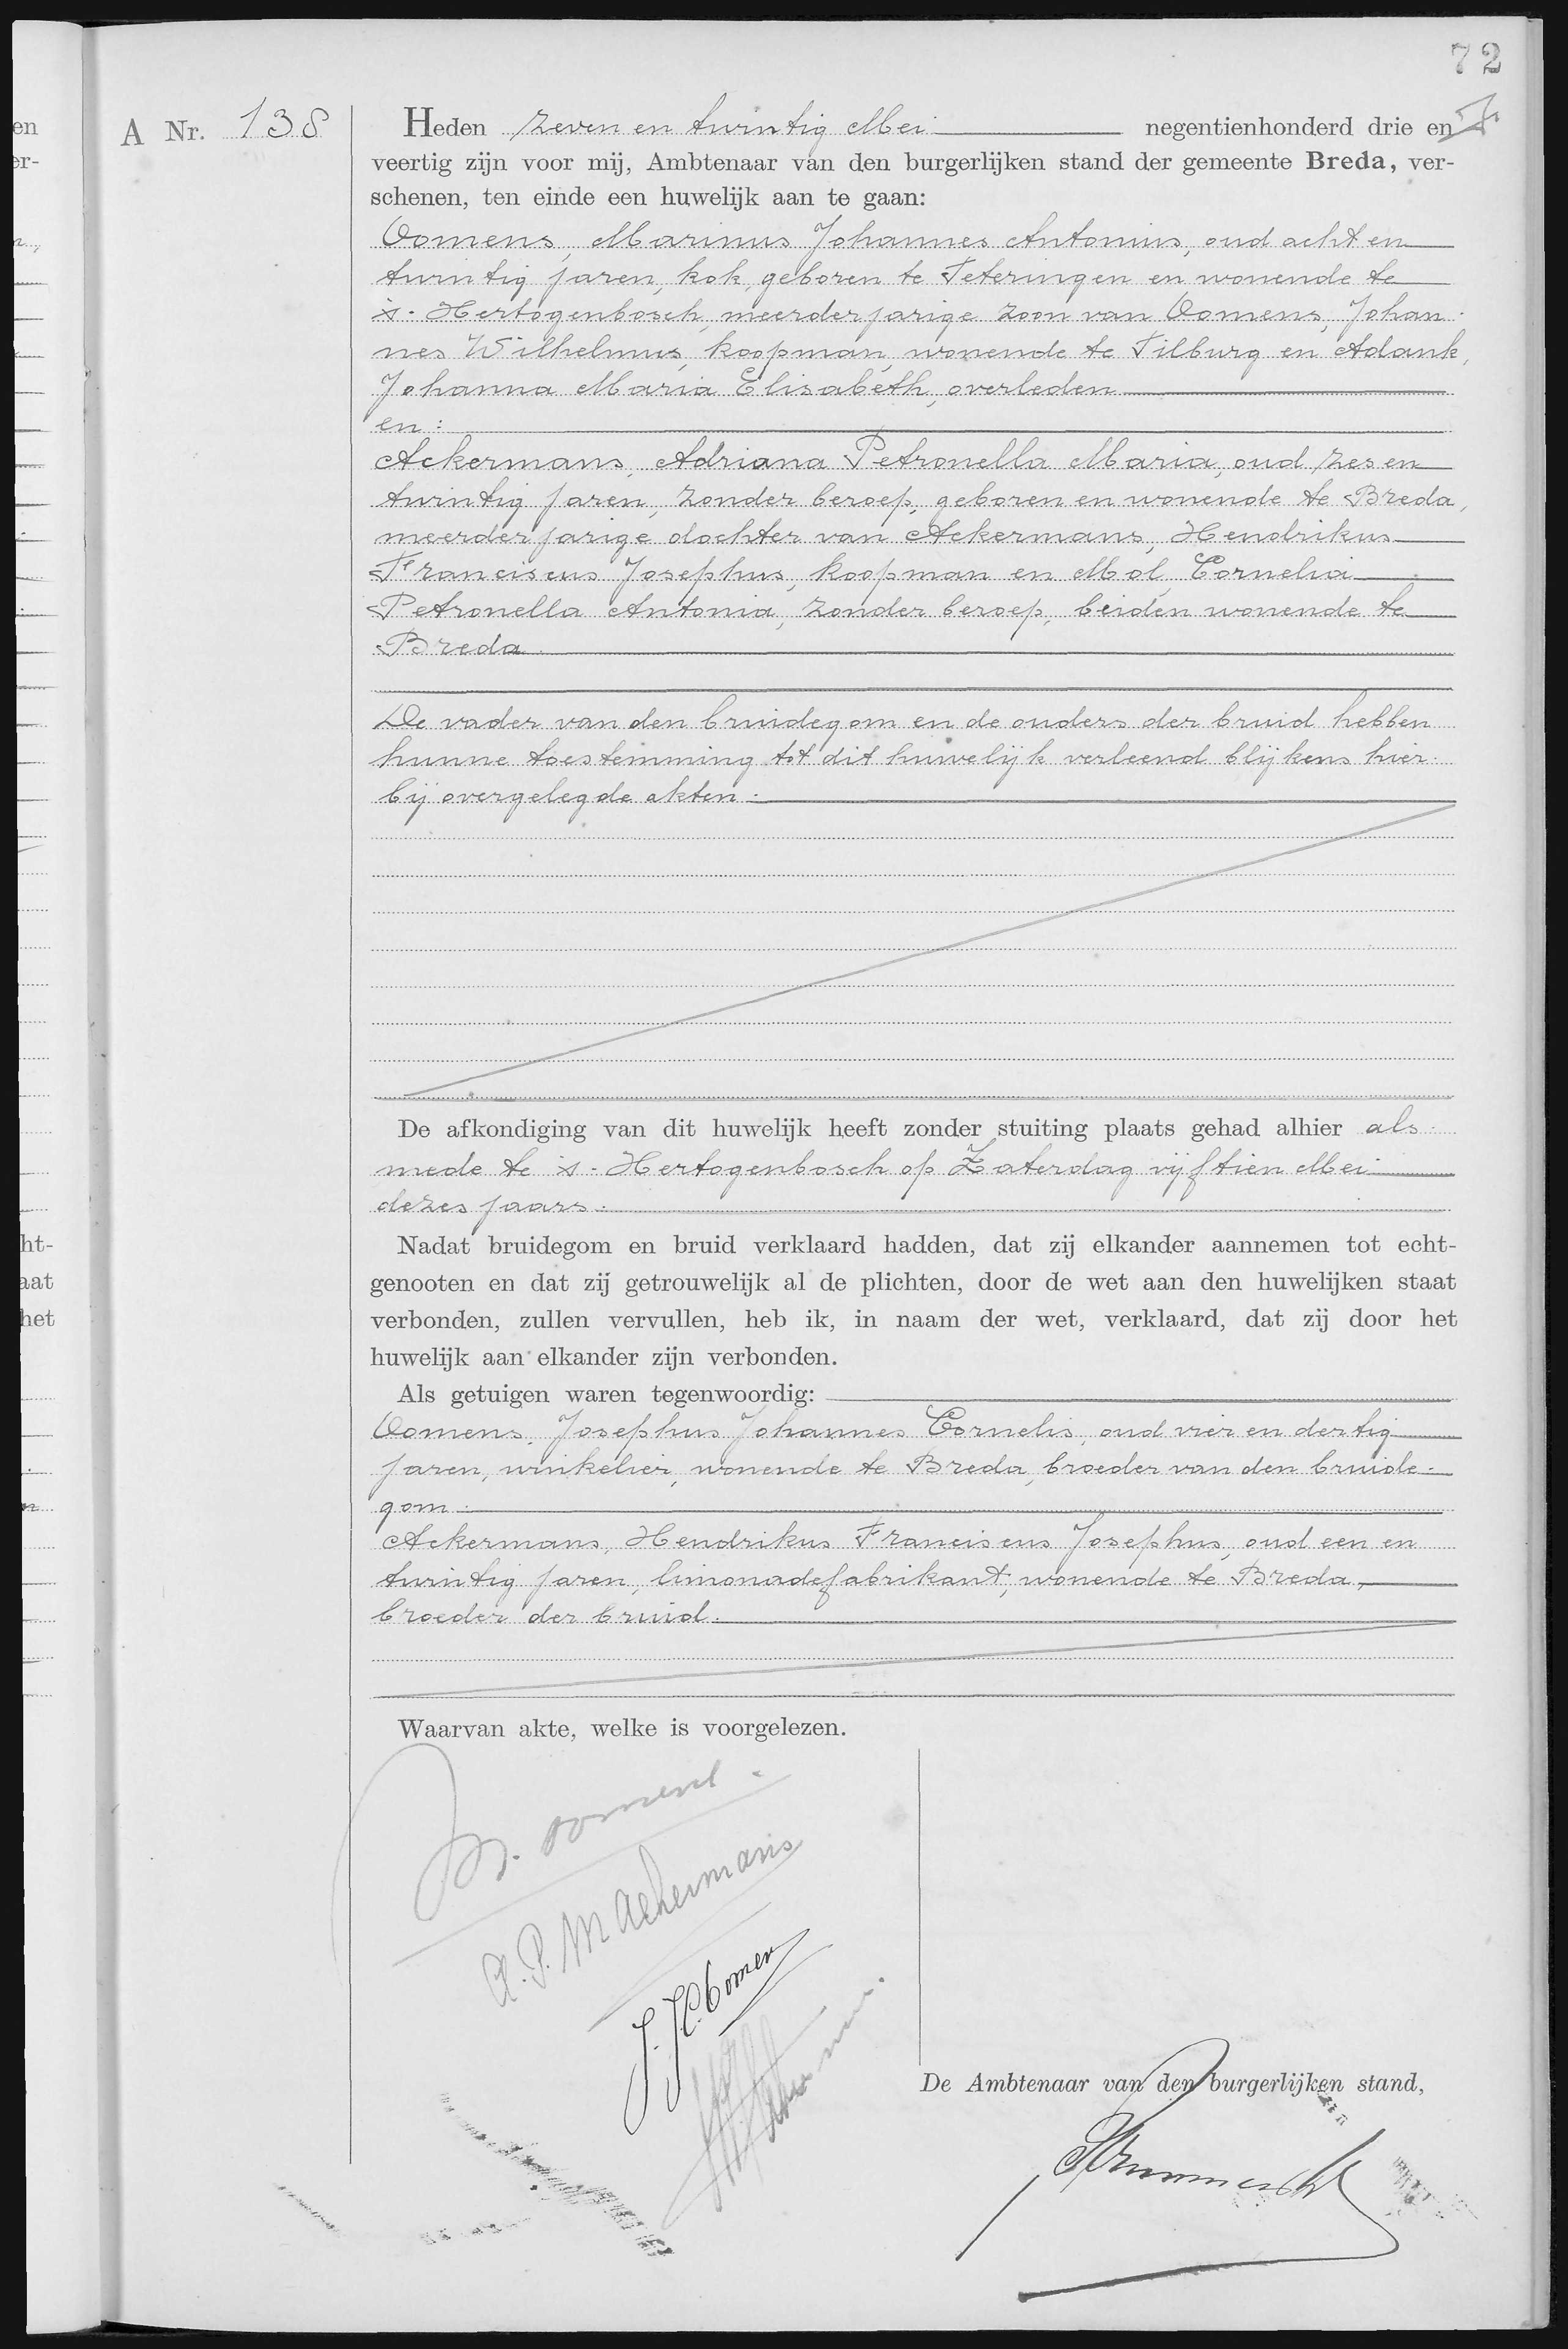 72
A Nr. 138
Heden zeven en twintig Mei negentienhonderd drie en
veertig zijn voor mij, Ambtenaar van den burgerlijken stand der gemeente Breda, ver-
schenen, ten einde een huwelijk aan te gaan:
Oomens, Marinus Johannes Antonius, oud acht en
twintig jaren, kok, geboren te Teteringen en wonende te
's-Hertogenbosch, meerderjarige zoon van Oomens, Johan-
nes Wilhelmus, koopman, wonende te Tilburg en Adank,
Johanna Maria Elisabeth, overleden
en:
Ackermans, Adriana Petronella Maria, oud zes en
twintig jaren, zonder beroep, geboren en wonende te Breda,
meerderjarige dochter van Ackermans, Hendrikus
Franciscus Josephus, koopman en Mol, Cornelia
Petronella Antonia, zonder beroep, beiden wonende te
Breda.
De vader van den bruidegom en de ouders der bruid hebben
hunne toestemming tot dit huwelijk verleend blijkens hier-
bij overgelegde akten.
De afkondiging van dit huwelijk heeft zonder stuiting plaats gehad alhier als-
mede te 's-Hertogenbosch op Zaterdag vijftien Mei
dezes jaars.
Nadat bruidegom en bruid verklaard hadden, dat zij elkander aannemen tot echt-
genooten en dat zij getrouwelijk al de plichten, door de wet aan den huwelijken staat
verbonden, zullen vervullen, heb ik, in naam der wet, verklaard, dat zij door het
huwelijk aan elkander zijn verbonden.
Als getuigen waren tegenwoordig:
Oomens, Josephus Johannes Cornelis, oud vier en dertig
jaren, winkelier, wonende te Breda, broeder van den bruide-
gom.
Ackermans, Hendrikus Franciscus Josephus, oud een en
twintig jaren, limonadefabrikant, wonende te Breda,
broeder der bruid.
Waarvan akte, welke is voorgelezen.
M. Oomens.
A. P. M Ackermans
J. J. C. Oomens
De Ambtenaar van den burgerlijken stand,